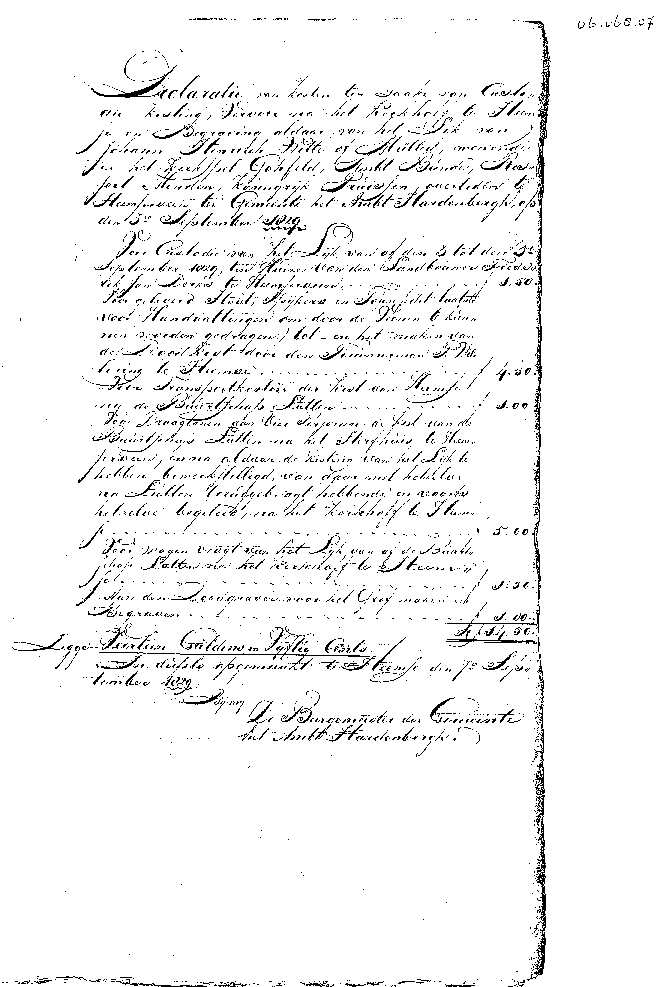 06.068.07
Declaratie van kosten ter zaake van Custo-
die kisting, Vervoer na het Kerkhoff te Heem
se en Begraving aldaar van het Lijk van
Johann Henrich Witte of Müller, wonende
in het Kerkspel Gohfeld, Amkt Bünde, Res-
sort Minden, Koningrijk Pruissen, overleden te
Heemserveen in Gemeente het Ambt Hardenbergh, op
den 3e September 1829
Voor Custodie van het Lijk van of den 3 tot den 5e
September 1829, ten Huize van den Landbouwer Frede-
rik Jan te Heemserveen f 1.50.
Voor geleverd Hout, Spijkers en Touw (dit laatste
voor Handvattingen om door de Veenen te kun-
nen worden gedragen) tot en het maken van
de Dood Kist door den Timmerman
te Heemse f 4.50.
Voor Transportkosten der Kist van Heemse
na de Buurtschap Lutten f 1.00.
Voor Draagloonen aan Vier Personen de kist van de
Buurtschap Lutten na het Sterfhuis te Heem-
serveen, en na aldaar de kisting van het Lijk te
hebben bewerkstelligd, van daar met hetzelve
na Lutten teruggebragt hebbende en voorts
hetzelve begeleid, na het Kerkhoff te Heem
se f 5.00.
Voor wagen vragt van het Lijk van of de Buurt-
schap Lutten na het Kerkhoff te Heemse
f 1.50.
Aan den Doodgraver voor het Graf maken en
Begraven f 1.00.
f 14.50.
Zegge Veertien Guldens en Vyftig Cents
In duplo opgemaakt te Heemse den 7e Sep-
tember 1829
By my
De Burgemeester der Gemeente
het Ambt Hardenbergh.